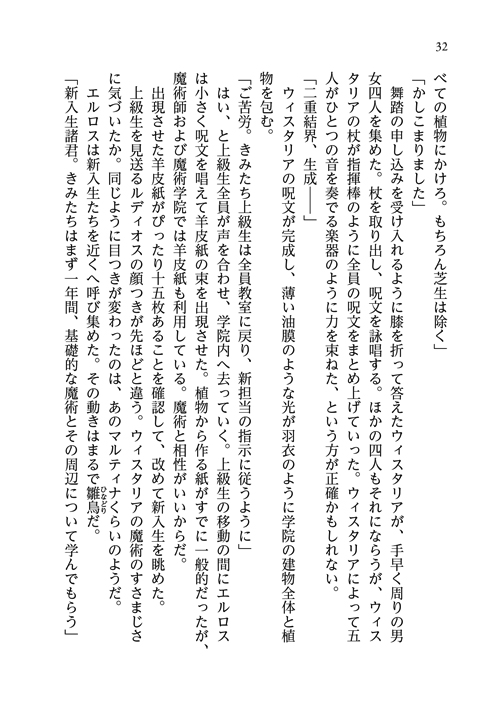 32
べての植物にかけろ。もちろん芝生は除く」
「かしこまりました」
　舞踏の申し込みを受け入れるように膝を折って答えたウィスタリアが、手早く周りの男
女四人を集めた。杖を取り出し、呪文を詠唱する。ほかの四人もそれにならうが、ウィス
タリアの杖が指揮棒のように全員の呪文をまとめ上げていった。ウィスタリアによって五
人がひとつの音を奏でる楽器のように力を束ねた、という方が正確かもしれない。
「二重結界、生成――」
　ウィスタリアの呪文が完成し、薄い油膜のような光が羽衣のように学院の建物全体と植
物を包む。
「ご苦労。きみたち上級生は全員教室に戻り、新担当の指示に従うように」
　はい、と上級生全員が声を合わせ、学院内へ去っていく。上級生の移動の間にエルロス
は小さく呪文を唱えて羊皮紙の束を出現させた。植物から作る紙がすでに一般的だったが、
魔術師および魔術学院では羊皮紙も利用している。魔術と相性がいいからだ。
　出現させた羊皮紙がぴったり十五枚あることを確認して、改めて新入生を眺めた。
　上級生を見送るルディオスの顔つきが先ほどと違う。ウィスタリアの魔術のすさまじさ
に気づいたか。同じように目つきが変わったのは、あのマルティナくらいのようだ。
　エルロスは新入生たちを近くへ呼び集めた。その動きはまるで雛鳥ひなどりだ。
「新入生諸君。きみたちはまず一年間、基礎的な魔術とその周辺について学んでもらう」